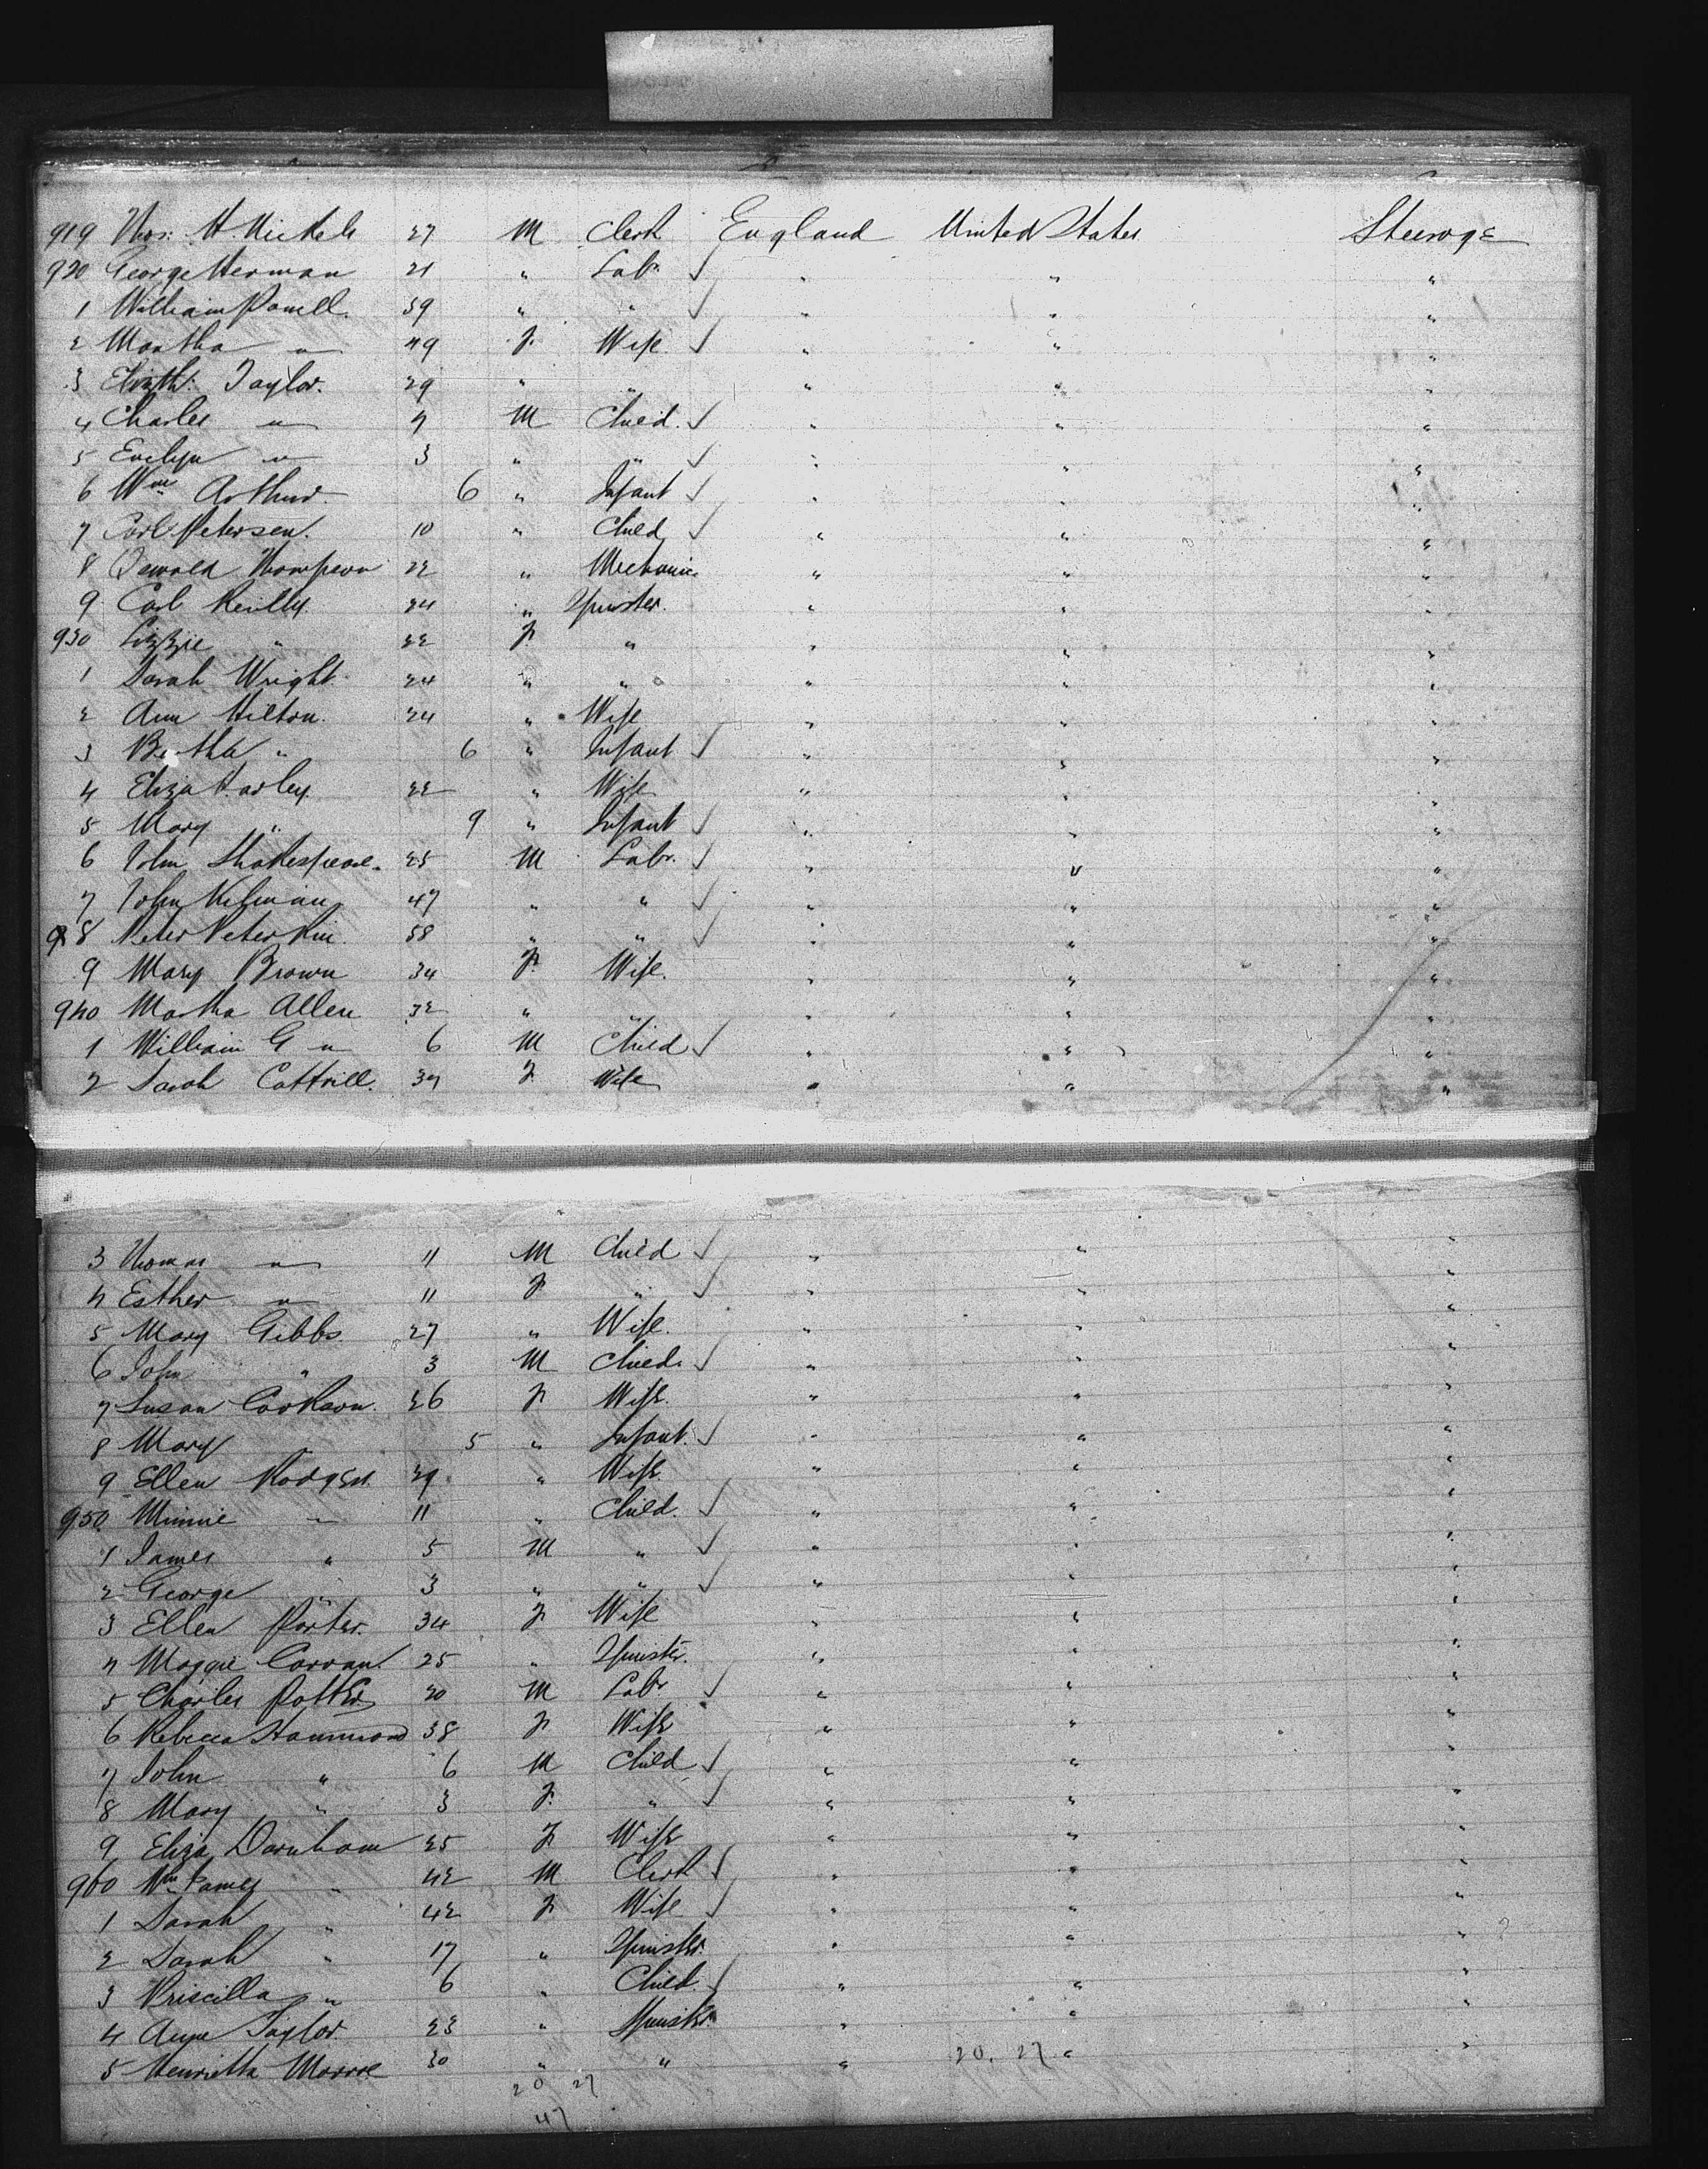 919 Thos. H. Nickels 27 M Clerk England United States Steerage
920 George Herman 21 " Labr. " " "
1 William Powell. 59 " " " " "
2 Martha " 49 F. Wife " " "
3 Elizth: Taylor. 29 " " " " "
4 Charles " 7 M Child. " " "
5 Evelyn " 3 " " " " "
6 Wm Arthur. 6 " Infant " " "
7 Carl Petersen. 10 " Child " " "
8 Oswald Thompson 22 " Mechanic " " "
9 Carl Reilly 24 " Spinster. " " "
930 Lizzie " 22 F. " " " "
1 Sarah Wright 24 " " " " "
2 Ann Hilton. 24 " Wife " " "
3 Bertha " 6 " Infant " " "
4 Eliza Harley. 22 " Wife " " "
5 Mary " 9 " Infant " " "
6 John Shakespeare. 25 M Labr. " " "
7 John 47 " " " " "
98 Peter Peterkin. 58 " " " " "
9 Mary Brown 34 F. Wife. " " "
940 Martha Allen 32 " " " " "
1 William G " 6 M Child " " "
2 Sarah Cottrill. 37 F Wife " " "
3 Thomas " 11 M Child " " "
4 Esther " 11 F. " " " "
5 Mary Gibbs. 27 " Wife. " " "
6 John " 3 M Child. " " "
7 Susan Cookson. 26 F Wife. " " "
8 Mary " 5 " Infant. " " "
9 Ellen Rodgers. 29. " Wife. " " "
950 Minnie " 11 " Child. " " "
1 James " 5 M " " " "
2 George " 3 " " " " "
3 Ellen Porter. 34 F Wife " " "
4 Maggie Corran. 25 " Spinster. " " "
5 Charles Potter 20 M Labr " " "
6 Rebecca Hammond 38 F Wife " " "
7 John " 6 M Child " " "
8 Mary " 3 F. " " " "
9 Eliza Darnham 25 F Wife " " "
960 Wm James " 42 M Clerk " " "
1 Sarah " 42 F Wife " " "
2 Sarah " 17 " Spinster. " " "
3 Priscilla " 6 " Child " " "
4 Anne Taylor. 23 " Spinster " " "
5 Henrietta Monroe 30 " " " 20. 27 " "
20 27
47